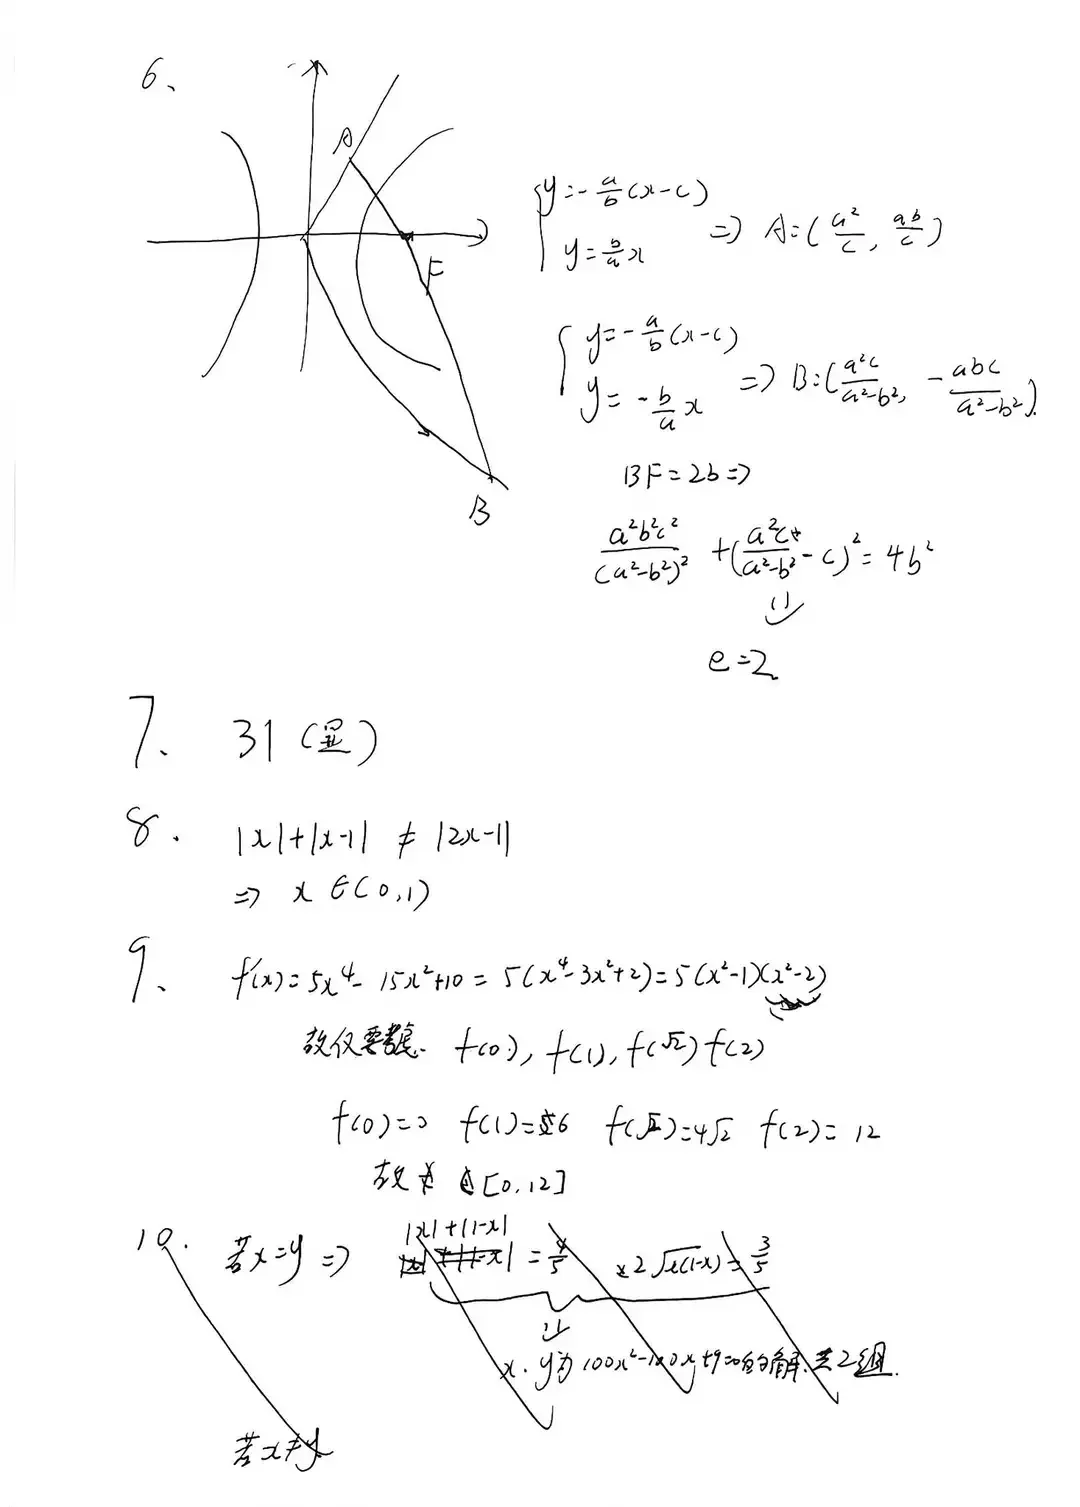 6、
A
F
B
y=-a/b(x-c)
y=b/a x
=> A:(a²/c, ab/c)
y=-a/b(x-c)
y=-b/a x
=> B:(a²c/(a²-b²), -abc/(a²-b²)).
BF=2b=>
a²b²c²/(a²-b²)² +(a²c/(a²-b²)-c)²=4b²
e=2
7、 31(显)
8. |x|+|x-1| ≠ |2x-1|
=> x∈(0,1)
9、 f'(x)=5x⁴-15x²+10=5(x⁴-3x²+2)=5(x²-1)(x²-2)
故仅要考虑 f(0),f(1),f(√2) f(2)
f(0)=0 f(1)=6 f(√2)=4√2 f(2)=12
故 [0,12]
10. 若x=y => |x|+|1-x| = 4/5 2√x(1-x)=3/5
x.y为100x²-100x+9=0的解,共2组.
若x≠y